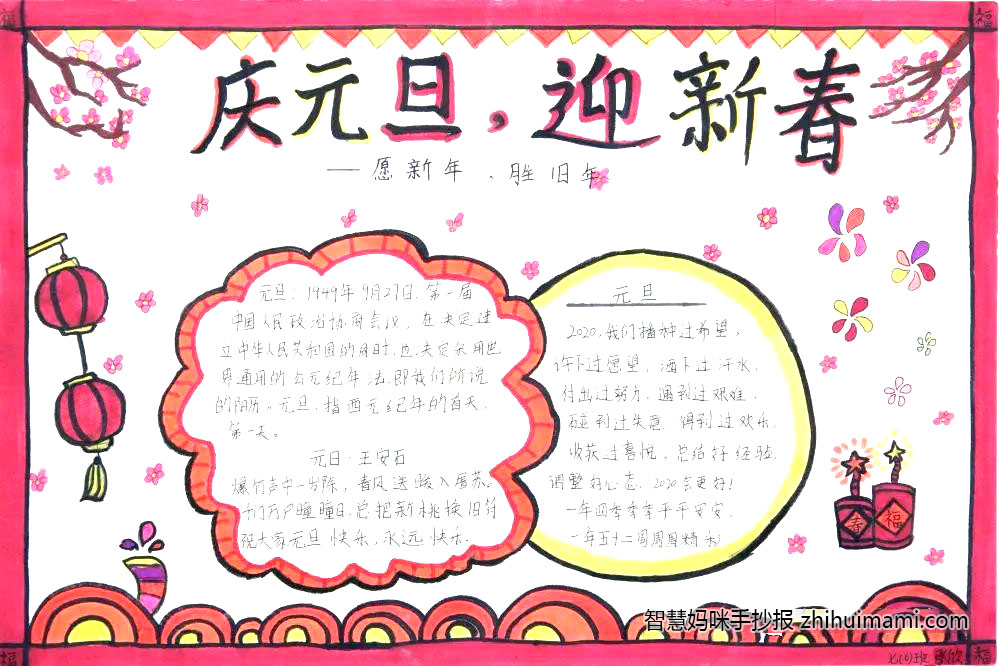 福
福
庆元旦，迎新春
—愿新年、胜旧年
元旦：1949年9月27日，第一届
中国人民政治协商会议，在决定建
立中华人民共和国的同时，也决定采用世
界通用的公元纪年法，即我们所说
的阳历。元旦，指西元纪年的首天，
第一天。
元日·王安石
爆竹声中一岁除，春风送暖入屠苏。
千门万户曈曈日，总把新桃换旧符
祝大家元旦快乐，永远快乐.
元旦
2020，我们播种过希望，
许下过愿望，洒下过汗水，
付出过努力，遇到过艰难，
碰到过失意，得到过欢乐，
收获过喜悦，总结好经验，
调整好心态，2020会更好！
一年四季季季平平安安，
一年五十二周周周精彩
春
福
智慧妈咪手抄报 zhihuimami.com
福
福